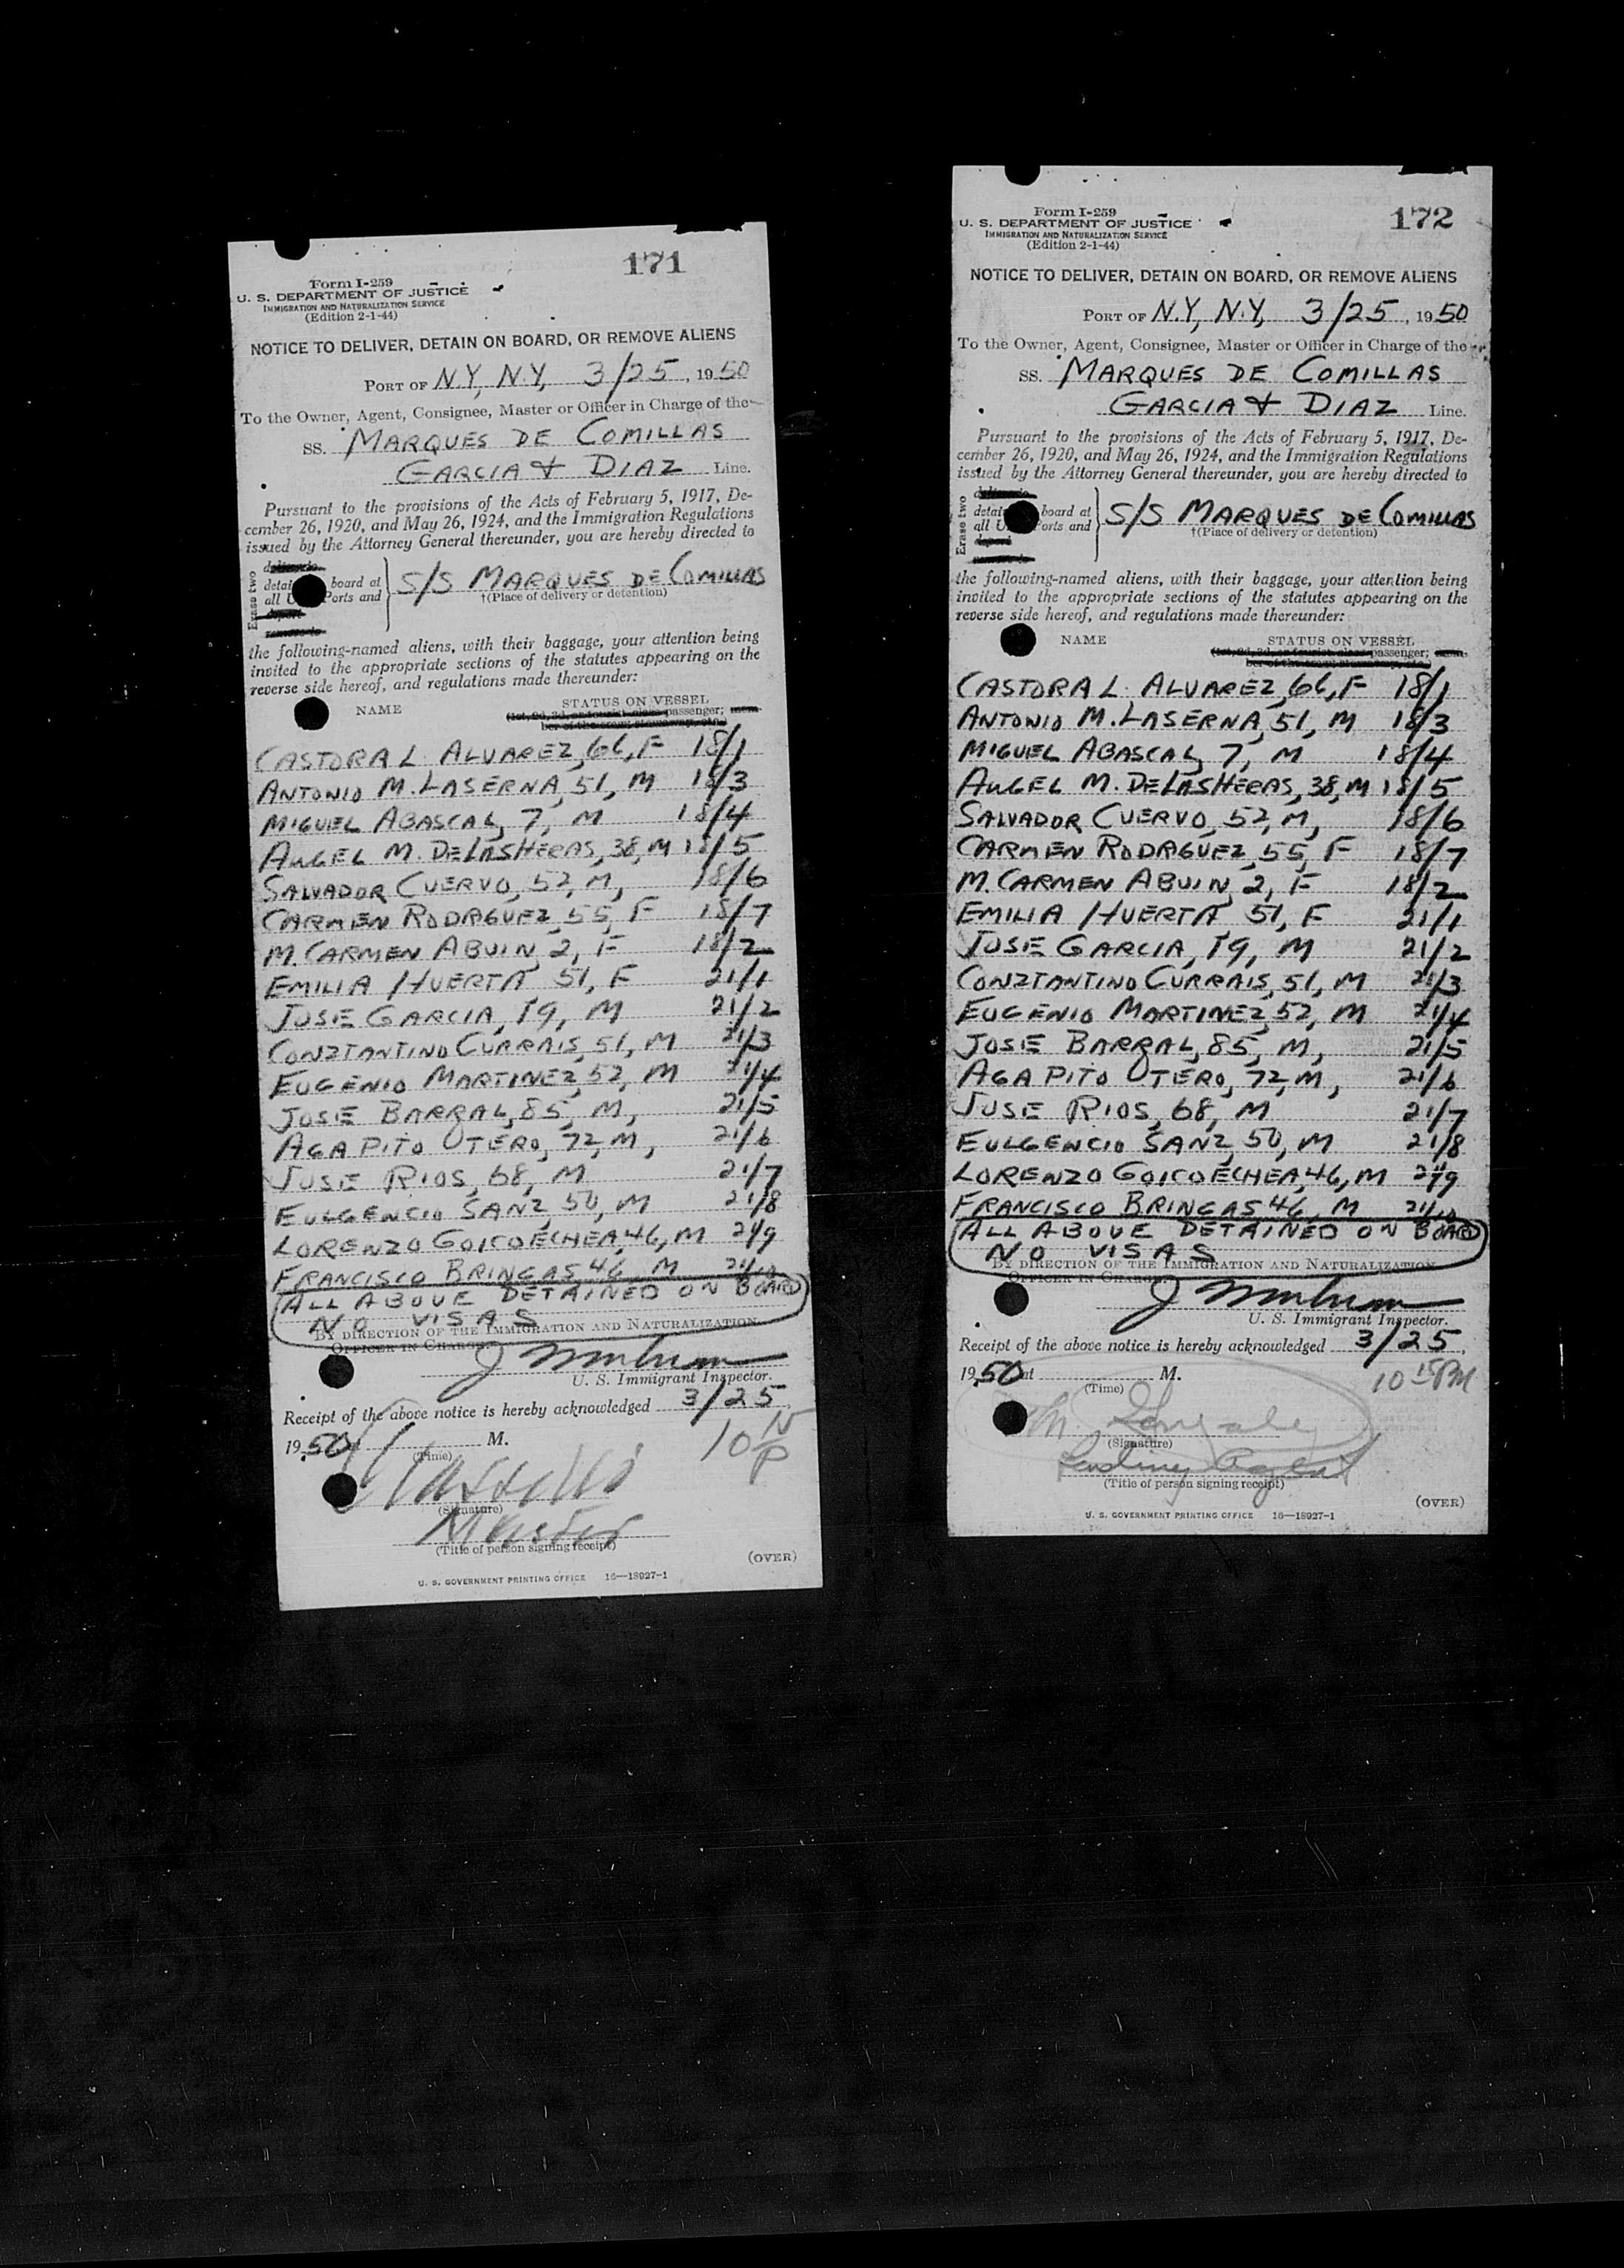 171
Form I-259
U. S. DEPARTMENT OF JUSTICE
IMMIGRATION AND NATURALIZATION SERVICE
(Edition 2-1-44)
NOTICE TO DELIVER, DETAIN ON BOARD, OR REMOVE ALIENS
PORT OF N.Y., N.Y., 3/25, 1950
To the Owner, Agent, Consignee, Master or Officer in Charge of the
SS. MARQUES DE COMILLAS
GARCIA & DIAZ Line.
Pursuant to the provisions of the Acts of February 5, 1917, De-
cember 26, 1920, and May 26, 1924, and the Immigration Regulations
issued by the Attorney General thereunder, you are hereby directed to
Erase two
board at
all Ports and
S/S MARQUES DE COMILLAS
†(Place of delivery or detention)
the following-named aliens, with their baggage, your attention being
invited to the appropriate sections of the statutes appearing on the
reverse side hereof, and regulations made thereunder:
NAME STATUS ON VESSEL
passenger;
CASTORA L. ALVAREZ, 66, F 18/1
ANTONIO M. LASERNA, 51, M 18/3
MIGUEL ABASCAL, 7, M 18/4
ANGEL M. DELASHERAS, 38, M 18/5
SALVADOR CUERVO, 52, M, 18/6
CARMEN RODRGUEZ, 55, F 18/7
M. CARMEN ABUIN, 2, F 18/2
EMILIA HUERTA 51, F 21/1
JOSE GARCIA, 19, M 21/2
CONZTANTINO CURRAIS, 51, M 21/3
EUGENIO MARTINEZ, 52, M 21/4
JOSE BARRAL, 85, M, 21/5
AGAPITO OTERO, 72, M, 21/6
JOSE RIOS, 68, M 21/7
EULGENCIO SANZ, 50, M 21/8
LORENZO GOICOECHEA, 46, M 21/9
FRANCISCO BRINGAS, 46, M 21/10
ALL ABOVE DETAINED ON BOARD
NO VISAS
BY DIRECTION OF THE IMMIGRATION AND NATURALIZATION
OFFICER IN CHARGE.
U. S. Immigrant Inspector.
Receipt of the above notice is hereby acknowledged 3/25,
1950 M.
(Time)
(Signature)
Master
(Title of person signing receipt)
(OVER)
U. S. GOVERNMENT PRINTING OFFICE 16—18927-1
172
Form I-259
U. S. DEPARTMENT OF JUSTICE
IMMIGRATION AND NATURALIZATION SERVICE
(Edition 2-1-44)
NOTICE TO DELIVER, DETAIN ON BOARD, OR REMOVE ALIENS
PORT OF N.Y., N.Y., 3/25, 1950
To the Owner, Agent, Consignee, Master or Officer in Charge of the
SS. MARQUES DE COMILLAS
GARCIA & DIAZ Line.
Pursuant to the provisions of the Acts of February 5, 1917, De-
cember 26, 1920, and May 26, 1924, and the Immigration Regulations
issued by the Attorney General thereunder, you are hereby directed to
Erase two
board at
all Ports and
S/S MARQUES DE COMILLAS
†(Place of delivery or detention)
the following-named aliens, with their baggage, your attention being
invited to the appropriate sections of the statutes appearing on the
reverse side hereof, and regulations made thereunder:
NAME STATUS ON VESSEL
passenger;
CASTORA L. ALVAREZ, 66, F 18/1
ANTONIO M. LASERNA, 51, M 18/3
MIGUEL ABASCAL, 7, M 18/4
ANGEL M. DELASHERAS, 38, M 18/5
SALVADOR CUERVO, 52, M, 18/6
CARMEN RODRGUEZ, 55, F 18/7
M. CARMEN ABUIN, 2, F 18/2
EMILIA HUERTA 51, F 21/1
JOSE GARCIA, 19, M 21/2
CONZTANTINO CURRAIS, 51, M 21/3
EUGENIO MARTINEZ, 52, M 21/4
JOSE BARRAL, 85, M, 21/5
AGAPITO OTERO, 72, M, 21/6
JOSE RIOS, 68, M 21/7
EULGENCIO SANZ, 50, M 21/8
LORENZO GOICOECHEA, 46, M 21/9
FRANCISCO BRINGAS 46, M 21/10
ALL ABOVE DETAINED ON BOARD
NO VISAS
BY DIRECTION OF THE IMMIGRATION AND NATURALIZATION
OFFICER IN CHARGE.
U. S. Immigrant Inspector.
Receipt of the above notice is hereby acknowledged 3/25,
1950 at M. 10 15 PM
(Time)
(Signature)
Agent
(Title of person signing receipt)
(OVER)
U. S. GOVERNMENT PRINTING OFFICE 16—18927-1